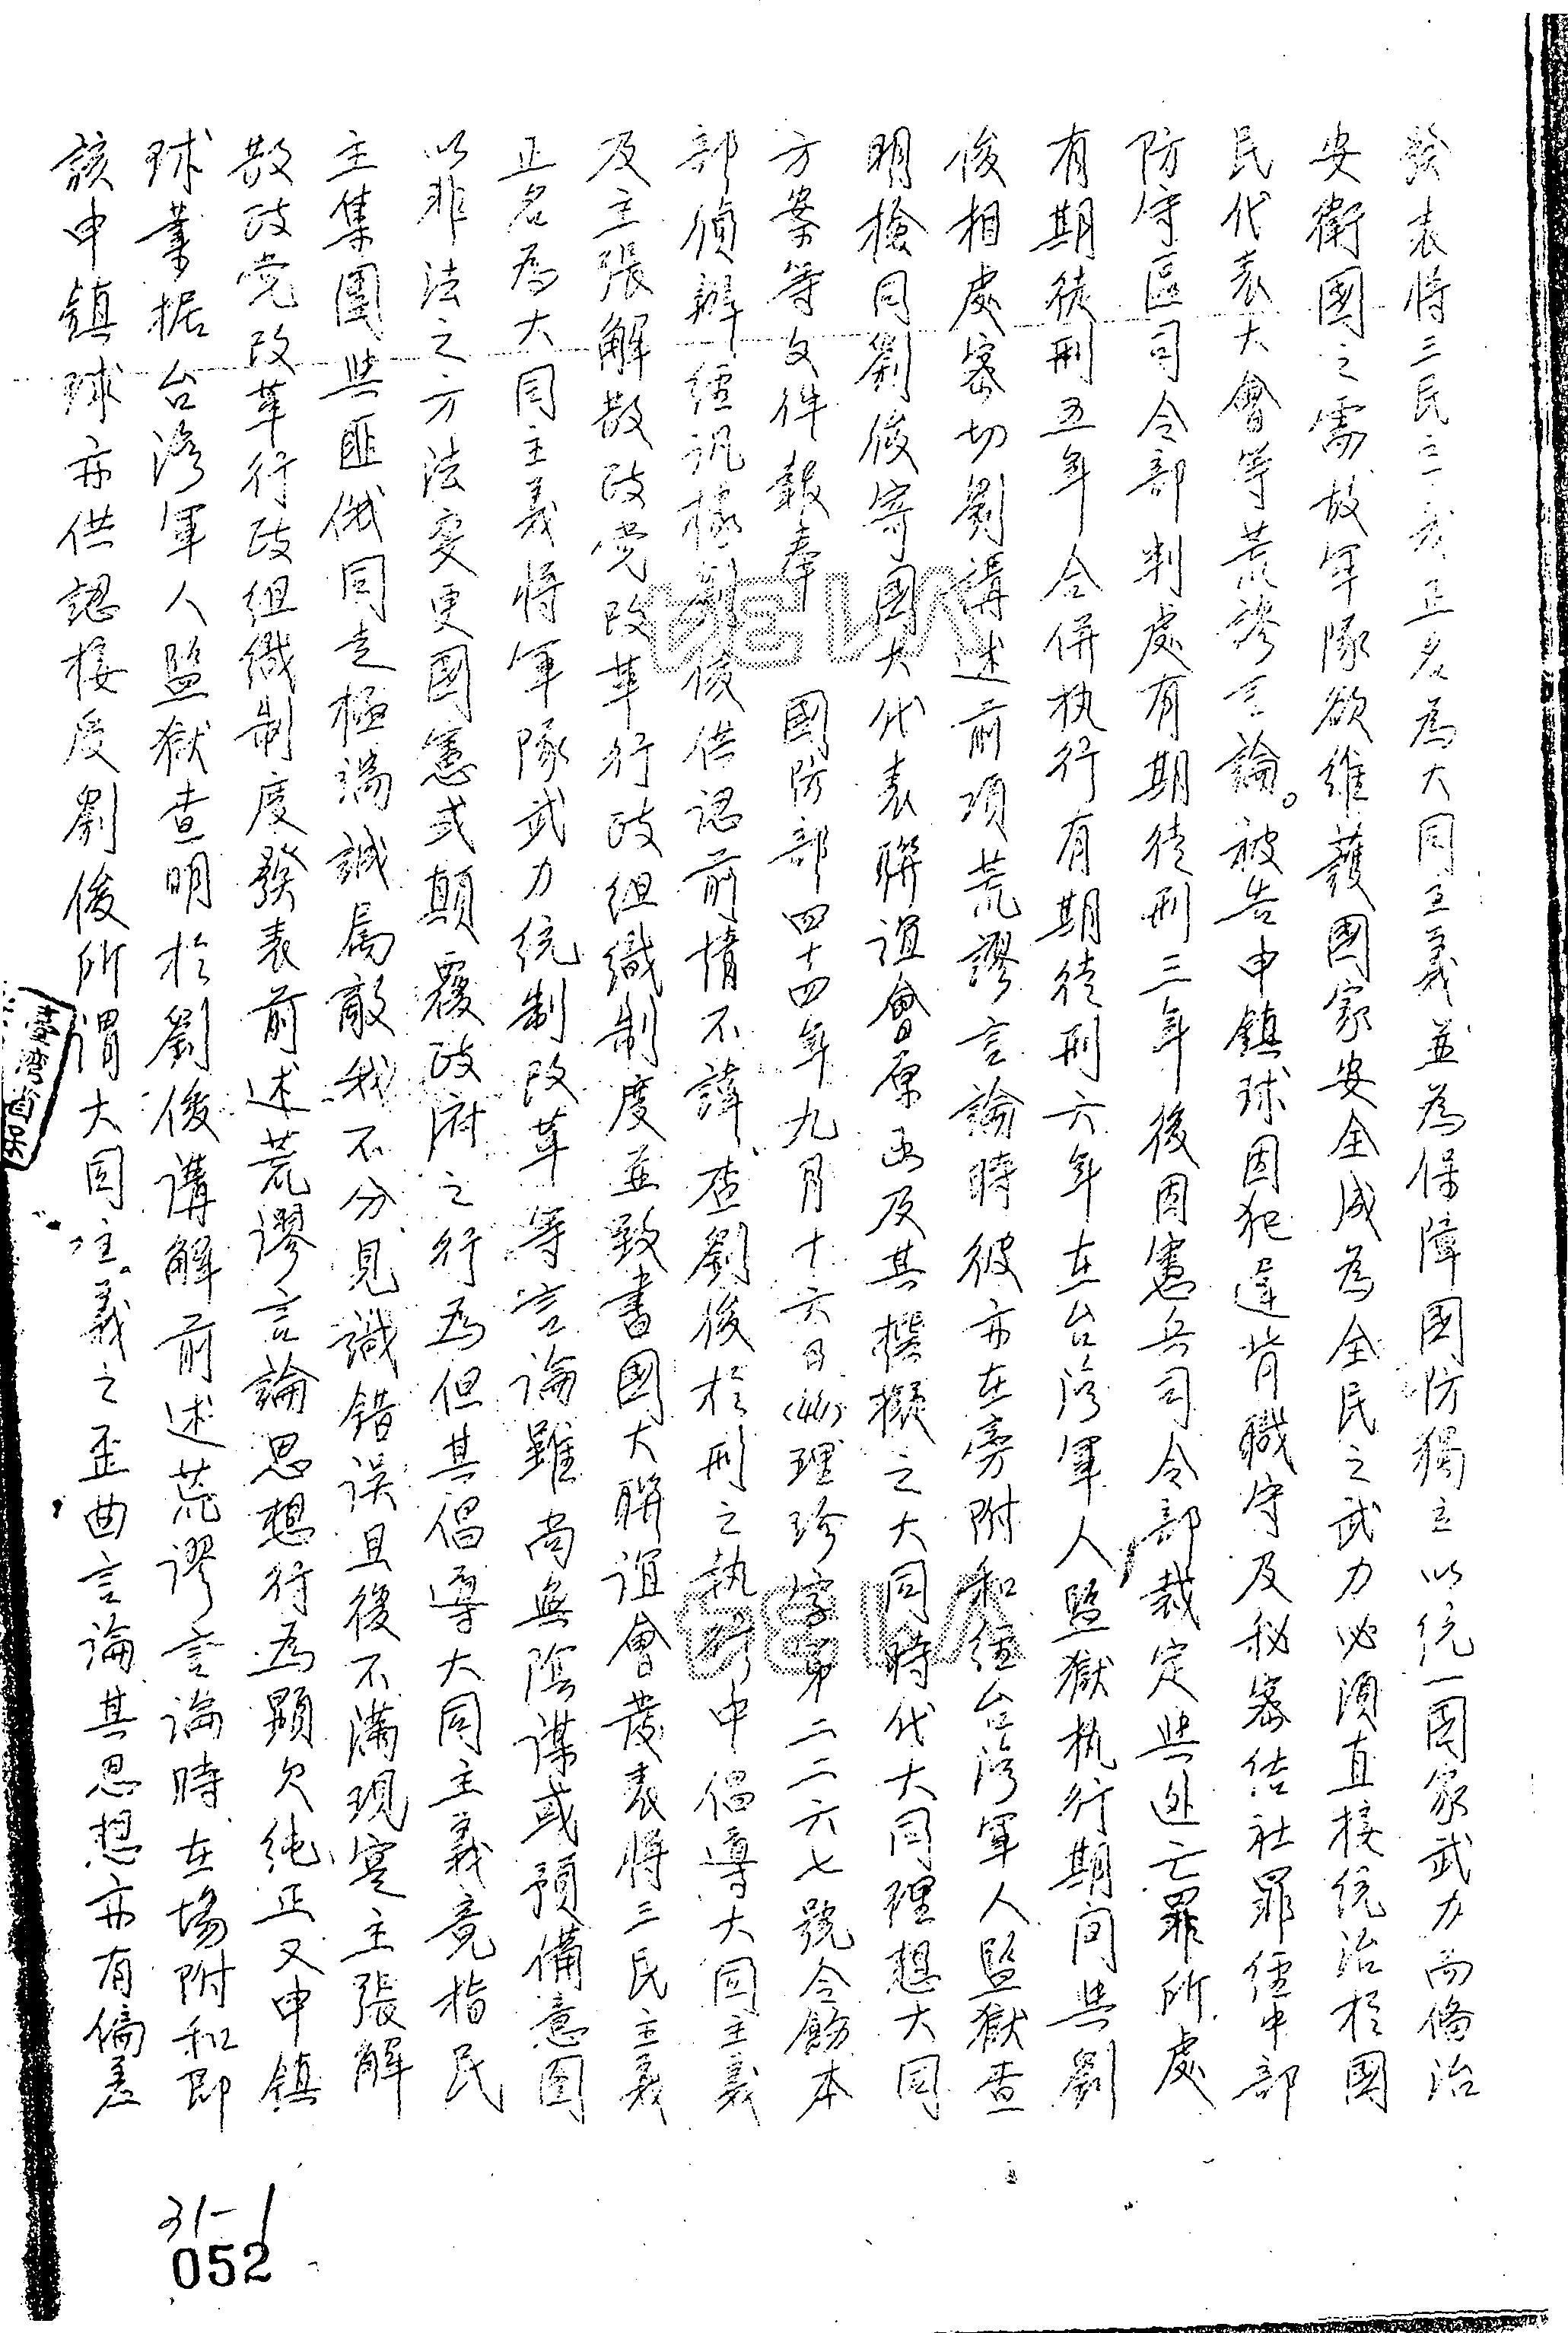 發表將三民主義正名為大同主義並為保障國防獨立以統一國家武力而俻治
安衛國之需故軍隊欲維護國家安全成為全民之武力必須直接統治於國
民代表大會等荒謬言論。被告申鎮球因犯違背職守及秘密结社罪經中部
防守區司令部判處有期徒刑三年後因憲兵司令部裁定與逃亡罪所處
有期徒刑五年合併执行有期徒刑六年在台湾軍人監獄执行期间與劉
俊相處密切劉講述前項荒謬言論時彼亦在旁附和經台湾軍人監獄查
明檢同劉俊寄國大代表聯誼會原函及其撰擬之大同時代大同理想大同
方案等文件報奉　國防部四十四年九月十六日(44)理珍字第二二六七號令飭本
部偵辦經訊據劉俊供認前情不諱查劉俊於刑之执行中倡導大同主義
及主張解散政党改革行政组織制度並致書國大聯誼會發表將三民主義
正名為大同主義將軍隊武力统制改革等言論雖尚無陰谋或預備意图
以非法之方法变更國憲或顛覆政府之行為但其倡導大同主義竟指民
主集團與匪俄同走極端誠属敵我不分見識错误且後不滿現实主張解
散政党改革行政组織制度發表前述荒謬言論思想行為顯欠纯正又申鎮
球業据台湾軍人監獄查明於劉俊講解前述荒謬言論時在場附和即
該申鎮球亦供認接受劉俊所謂大同主義之歪曲言論其思想亦有偏差
臺湾省
31-1
052